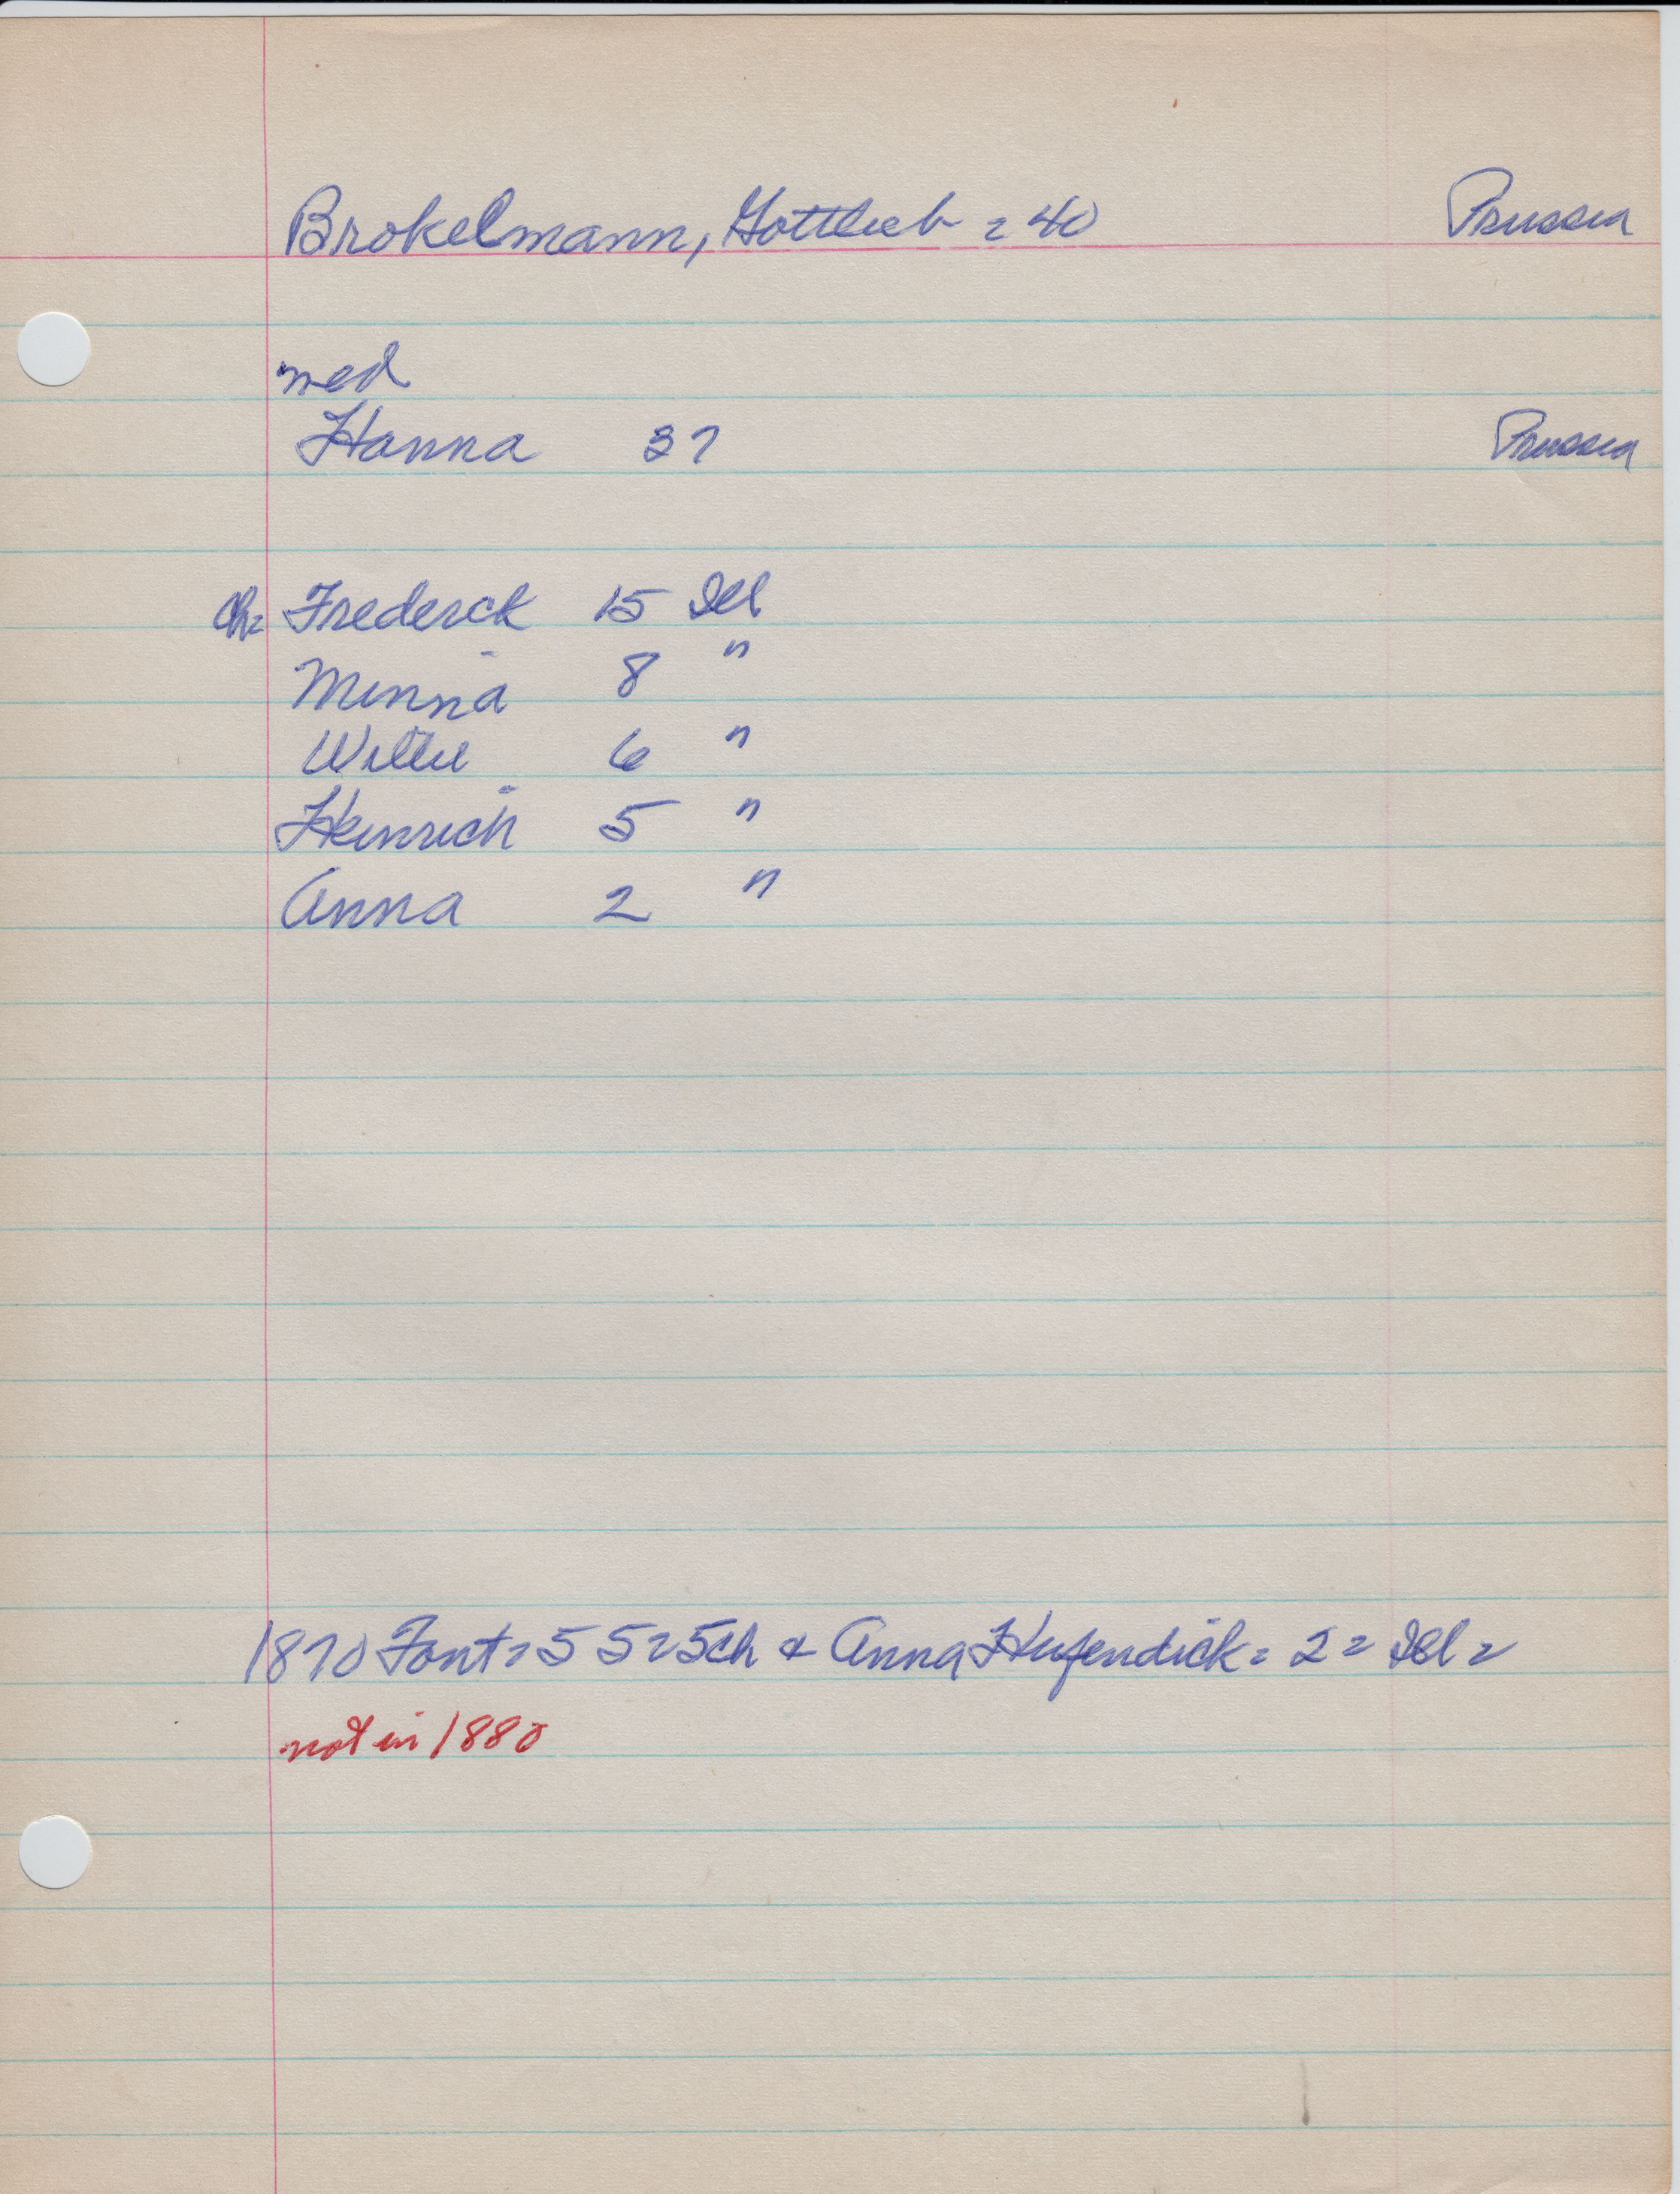 Brokelmann, Gottlieb = 40 Prussia
med
Hanna 37 Prussia
Ch= Frederick 15 Ill
Minna 8 "
Willie 6 "
Heinrich 5 "
Anna 2 "
1870 Font= 55=5ch & Anna Hufendick= 2= Ill=
not in 1880